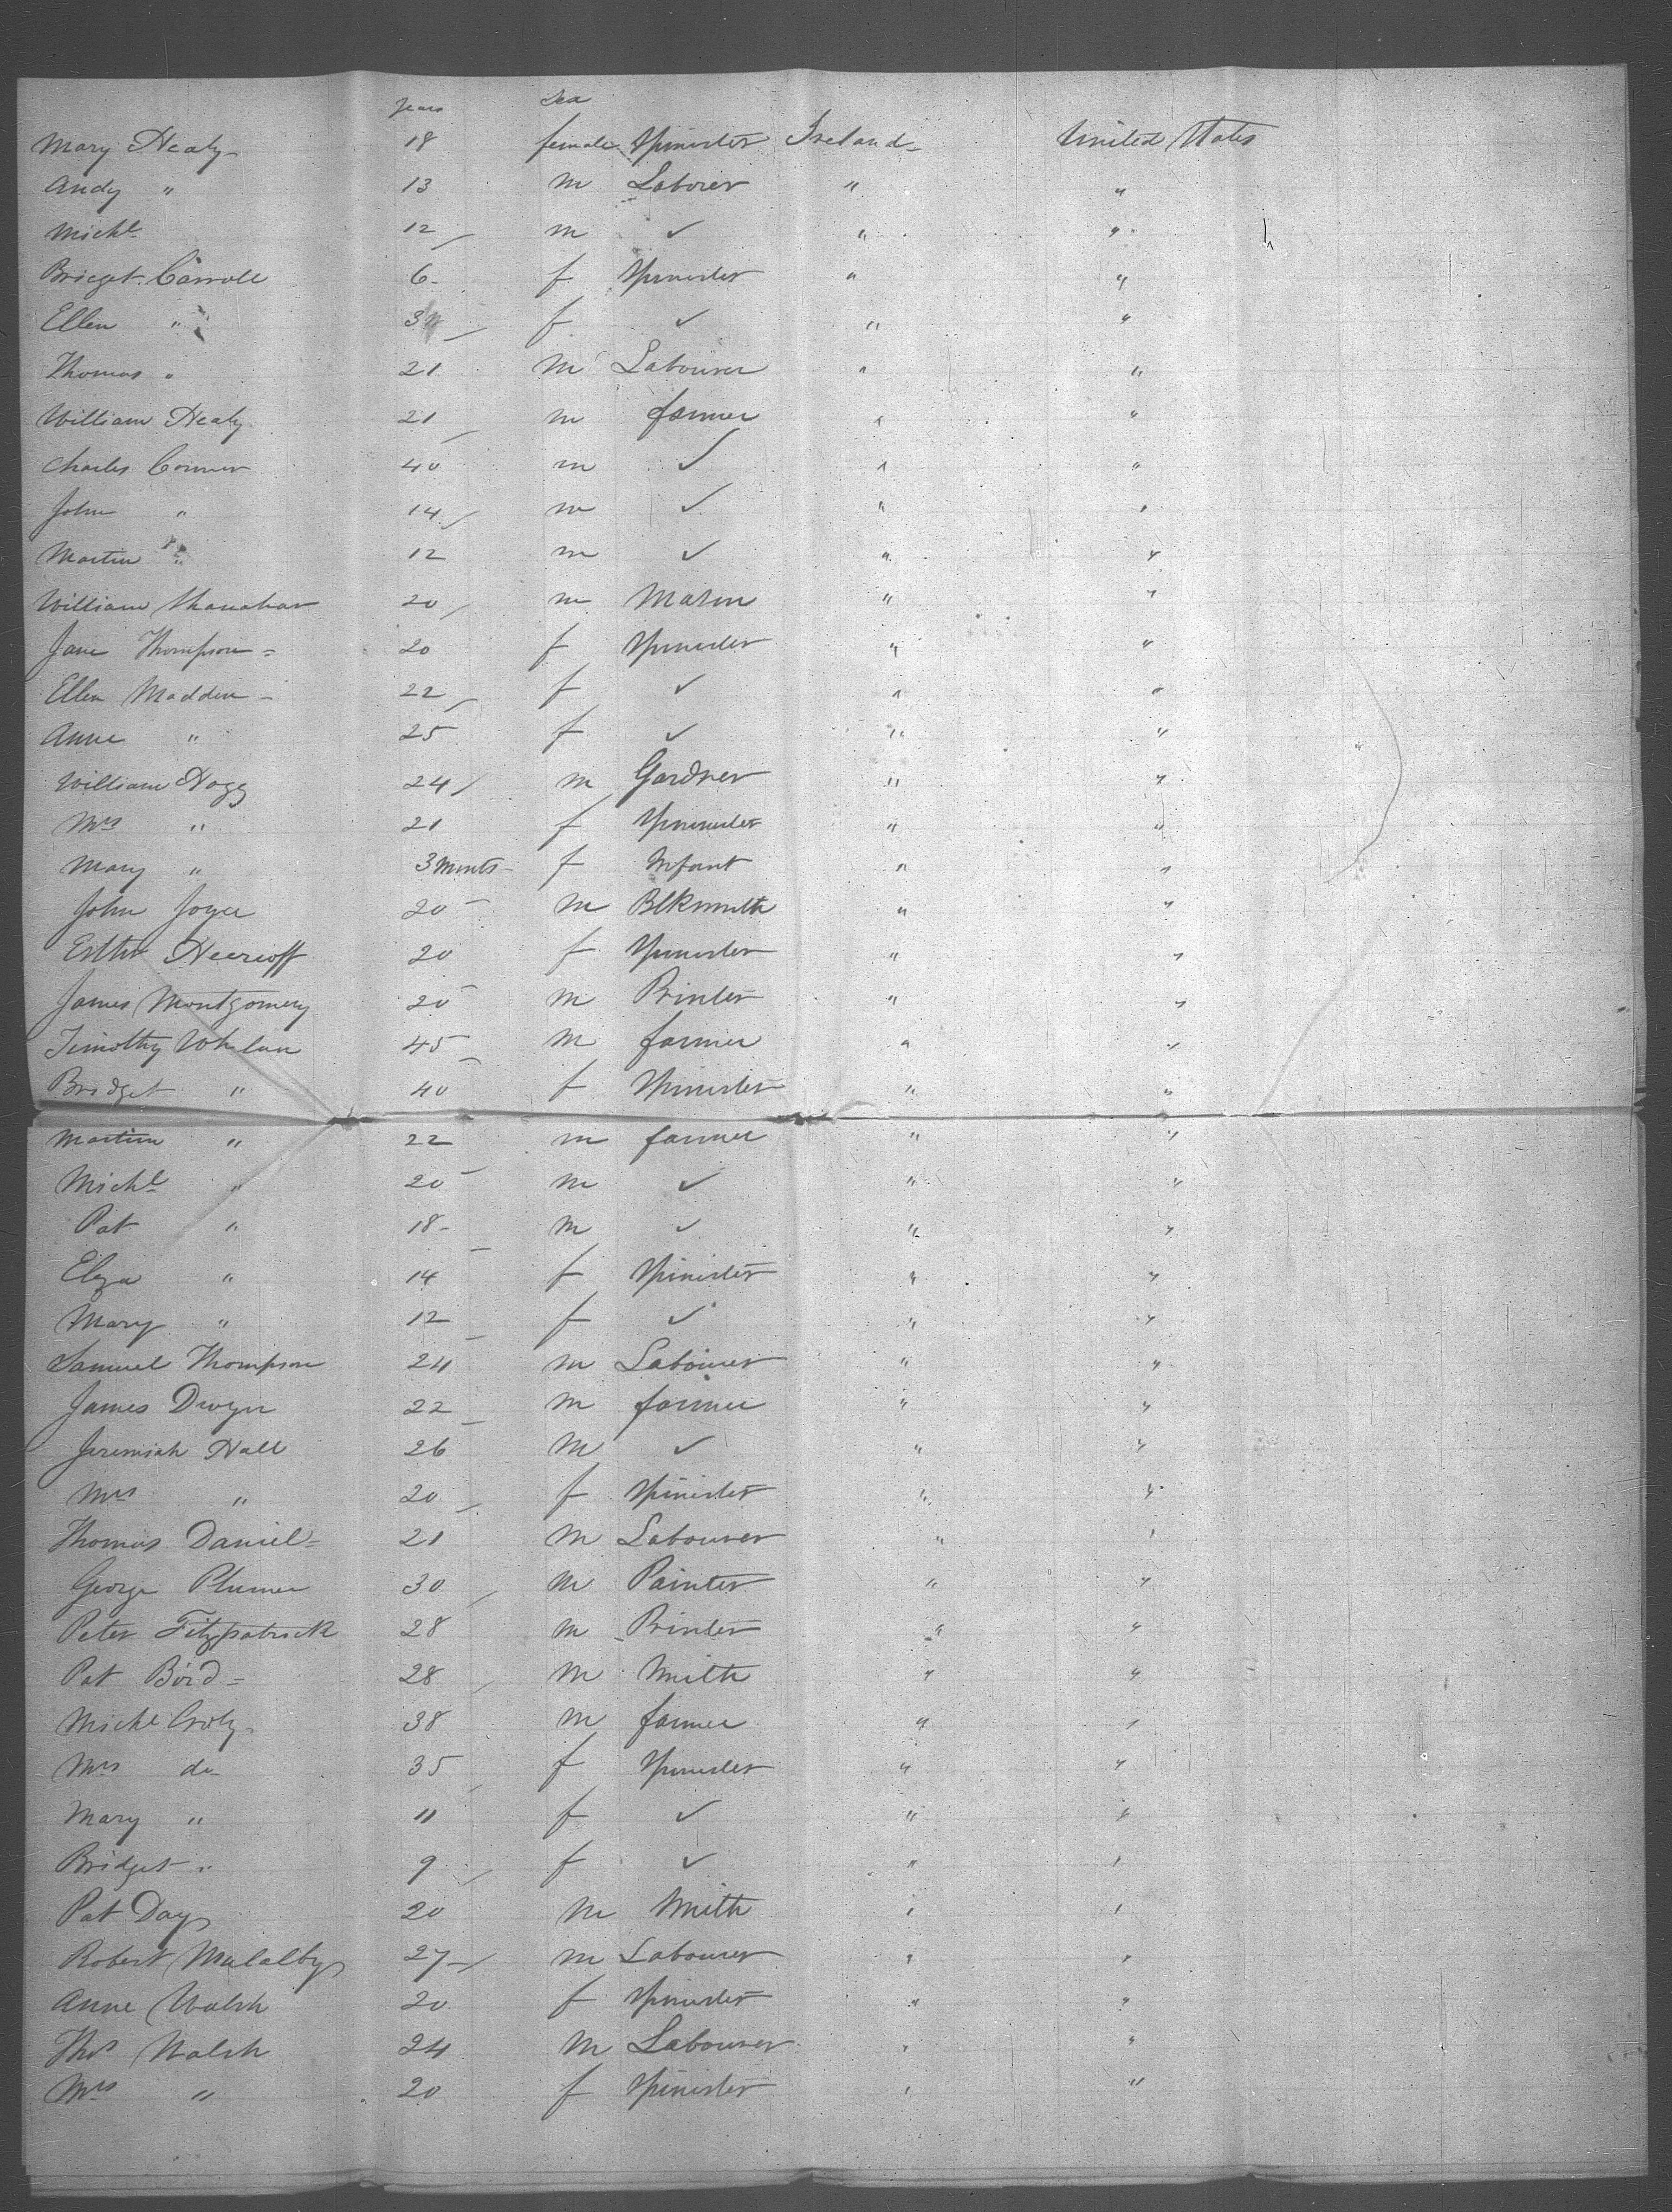 years Sex
Mary Healy 18 female Spinster Ireland United States
Andy " 13 m Laborer " "
Michl 12 m ✓ " "
Bridget Carroll 6 f Spinster " "
Ellen " 3 f ✓ " "
Thomas " 21 m Labourer " "
William Healy 21 m farmer " "
Charles Connor 40 m ✓ " "
John " 14 m ✓ " "
Martin " 12 m ✓ " "
William Shanahan 20 m Mason " "
Jane Thompson 20 f Spinster " "
Ellen Madden 22 f ✓ " "
Anne " 25 f ✓ " "
William Hogg 24 m Gardner " "
Mrs " 21 f Spinster " "
Mary " 3 Months f Infant " "
John Joyce 20 m Blksmith " "
Esther 20 f Spinster " "
James Montgomery 20 m Printer " "
Timothy Whelan 45 m farmer " "
Bridget " 40 f Spinster " "
Martin " 22 m farmer " "
Michl " 20 m ✓ " "
Pat " 18 m ✓ " "
Eliza " 14 f Spinster " "
Mary " 12 f ✓ " "
Samuel Thompson 24 m Labourer " "
James Dwyer 22 m farmer " "
Jeremiah Hall 26 m ✓ " "
Mrs " 20 f Spinster " "
Thomas Daniel 21 m Labourer " "
George Plumer 30 m Painter " "
Peter Fitzpatrick 28 m Printer " "
Pat Bird 28 m Smith " "
Michl Croly 38 m farmer " "
Mrs do 35 f Spinster " "
Mary " 11 f ✓ " "
Bridget " 9 f ✓ " "
Pat Day 20 m Smith " "
Robert 27 m Labourer " "
Anne Walsh 20 f Spinster " "
Thos Walsh 24 m Labourer " "
Mrs " 20 f Spinster " "